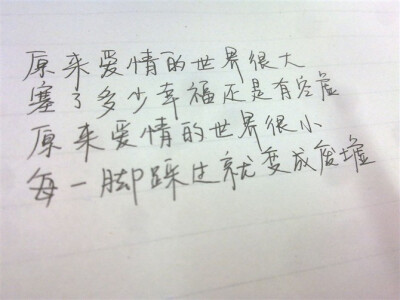 原来爱情的世界很大
塞了多少幸福还是有空虚
原来爱情的世界很小
每一脚踩过就变成废墟